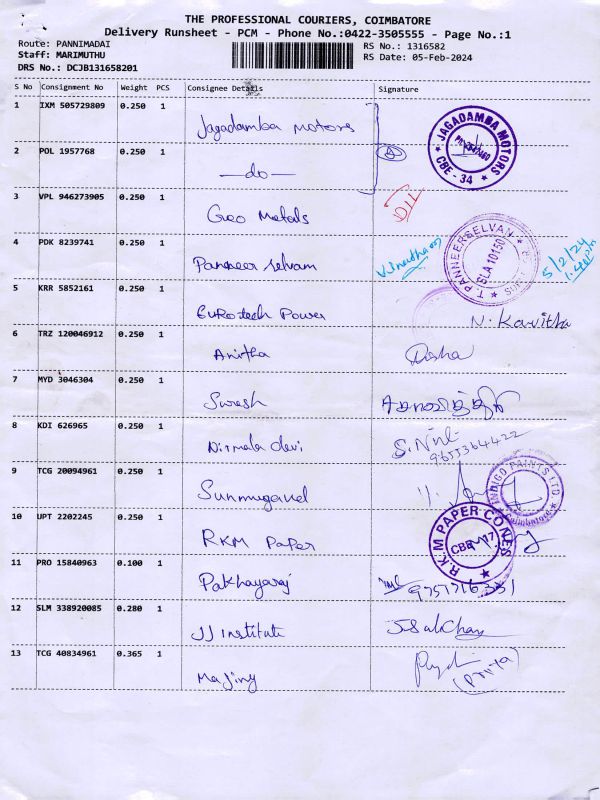 THE PROFESSIONAL COURIERS, COIMBATORE
Delivery Runsheet - PCM - Phone No.:0422-3505555 - Page No.:1
Route: PANNIMADAI RS No.: 1316582
Staff: MARIMUTHU RS Date: 05-Feb-2024
DRS No.: DCJB131658201
S No Consignment No Weight PCS Consignee Details Signature
1 IXM 505729809 0.250 1 Jagadamba Motors
JAGADAMBA MOTORS CBE - 34
2 POL 1957768 0.250 1 —do—
3 VPL 946273905 0.250 1 Geo Metals
4 PDK 8239741 0.250 1 Panneer selvam
T. PANNEERSELVAN SLA 10150
5/2/24
5 KRR 5852161 0.250 1 Eurotech Power N. Kavitha
6 TRZ 120046912 0.250 1 Anitha
7 MYD 3046304 0.250 1 Suresh
8 KDI 626965 0.250 1 Nirmala devi
9655364422
9 TCG 20094961 0.250 1 Sunmugavel
INDIGO PAINTS LTD Coimbatore
10 UPT 2202245 0.250 1 RKM Paper
R.K.M PAPER CONES
11 PRO 15840963 0.100 1 Pakhayaraj
12 SLM 338920085 0.280 1 JJ institute
13 TCG 40834961 0.365 1 Majiny
(Priya)